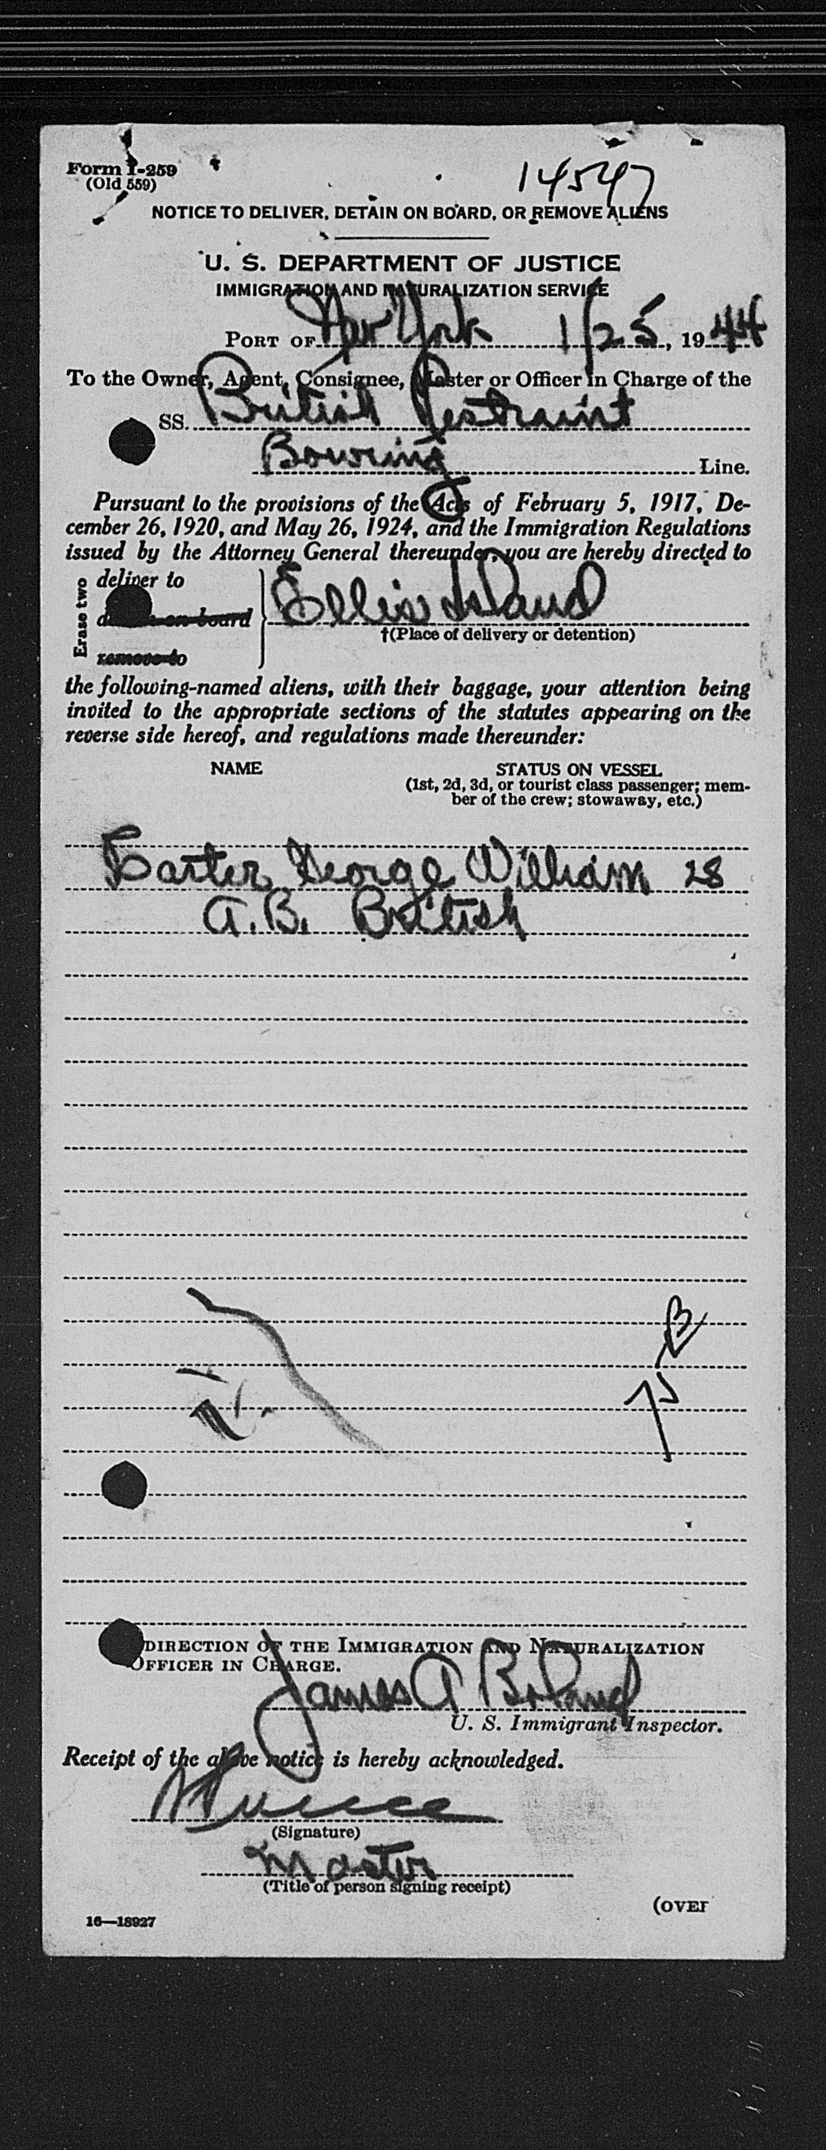 Form I-259
(Old 559)
14547
NOTICE TO DELIVER, DETAIN ON BOARD, OR REMOVE ALIENS
U. S. DEPARTMENT OF JUSTICE
IMMIGRATION AND NATURALIZATION SERVICE
PORT OF New York 1/25, 1944
To the Owner, Agent, Consignee, Master or Officer in Charge of the
SS. British Restraint
Bowring Line.
Pursuant to the provisions of the Acts of February 5, 1917, De-
cember 26, 1920, and May 26, 1924, and the Immigration Regulations
issued by the Attorney General thereunder, you are hereby directed to
Erase two
deliver to
on board
remove to
Ellis Island
†(Place of delivery or detention)
the following-named aliens, with their baggage, your attention being
invited to the appropriate sections of the statutes appearing on the
reverse side hereof, and regulations made thereunder:
NAME STATUS ON VESSEL
(1st, 2d, 3d, or tourist class passenger; mem-
ber of the crew; stowaway, etc.)
George William 28
A.B. British
DIRECTION OF THE IMMIGRATION AND NATURALIZATION
OFFICER IN CHARGE.
James A Boland
U. S. Immigrant Inspector.
Receipt of the above notice is hereby acknowledged.
(Signature)
Master
(Title of person signing receipt)
(OVER
16—18927